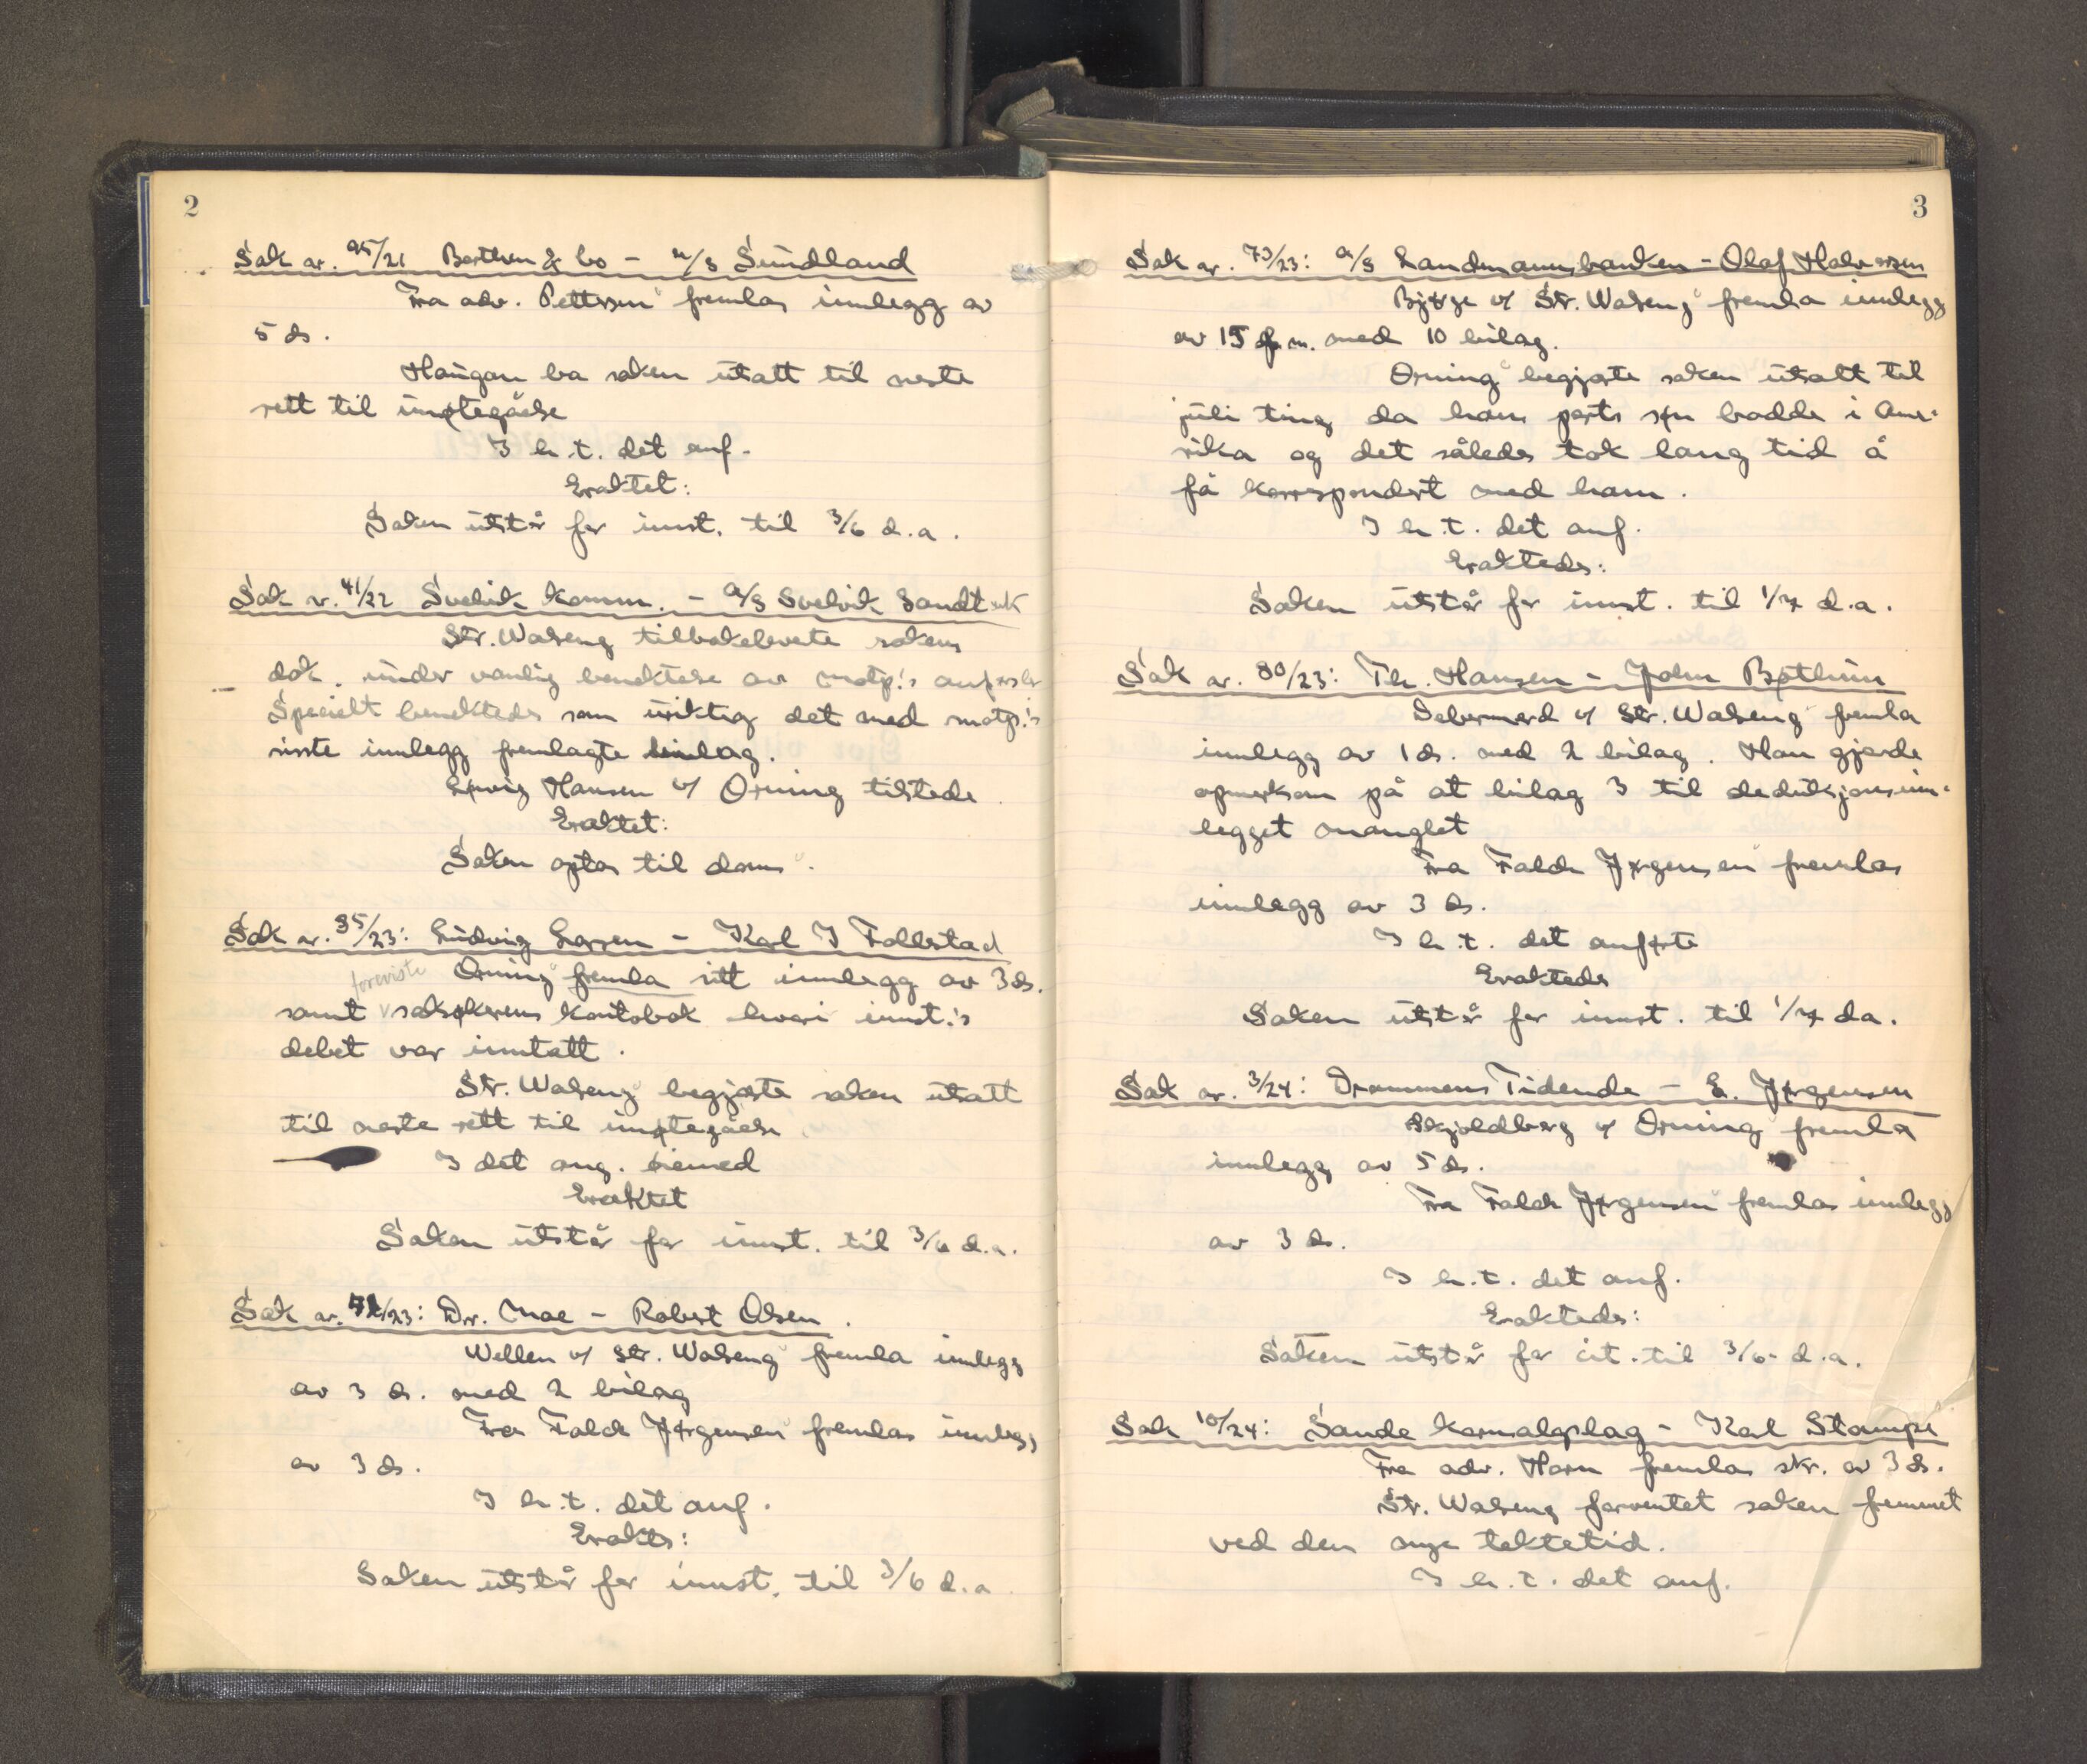 2
Sak nr. 95/21 Berthsen & Co - A/S Sundland
Fra adv. Pettersen fremlas innlegg av
5 ds.
Haugan ba saken utsatt til neste
rett til imøtegåelse
I h. t. det anf.
Eraktet:
Saken utstår for innst. til 3/6 d.a.
Sak nr. 41/22 Svelvik komm. - A/S Svelvik Sandtak
Str. Walseng tilbakeleverte sakens
dok. under vanlig benektelse av motp.'s anførsler
Specielt benektedes som uriktig det med motp.'s
siste innlegg fremlagte bilag.
Hansen v/ Orning tilstede.
Eraktet:
Saken optas til doms.
Sak nr. 35/23: Ludvig Larsen - Karl J Follestad
Orning fremla sitt innlegg av 3 ds.
foreviste
samt v saksøkerens kontobok hvori innst.'s
debet var inntatt.
Str. Walseng begjærte saken utsatt
til neste rett til imøtegåelse.
I det ang. hermed
Eraktet
Saken utstår for innst. til 3/6 d.a.
Sak nr. 72/23: Dr. Moe - Robert Olsen.
Wellen v/ Str. Walseng fremla innlegg
av 3 ds. med 2 bilag
Fra Falck Jørgensen fremlas innlegg
av 3 ds.
I h. t. det anf.
Erakts:
Saken utstår for innst. til 3/6 d.a
3
Sak nr. 73/23: A/S Landmannsbanken - Olaf Halvorsen
Bjørge v/ Str. Walseng fremla innlegg
av 15 f.m. med 10 bilag.
Orning begjærte saken utsatt til
juli ting da hans parts søn bodde i Ame-
rika og det således tok lang tid å
få korrespondert med ham.
I h. t. det anf.
Eraktedes:
Saken utstår for innst. til 1/7 d.a.
Sak nr. 80/23: Th. Hansen - John Bøthun
v/ Str. Walseng fremla
innlegg av 1 ds. med 2 bilag. Han gjorde
opmerksom på at bilag 3 til deduksjonsinn-
legget manglet
Fra Falck Jørgensen fremlas
innlegg av 3 ds.
I h. t. det anførte
Eraktedes
Saken utstår for innst. til 1/7 d.a.
Sak nr. 3/24: Drammens Tidende - E. Jørgensen
Skjoldberg v/ Orning fremla
innlegg av 5 ds.
Fra Falck Jørgensen fremlas innlegg
av 3 ds.
I h. t. det anf.
Eraktedes:
Saken utstår for cit. til 3/6- d.a.
Sak 10/24: Sande Kornsalgslag - Karl Stampe
Fra adv. Horn fremlas skr. av 3 ds.
Str. Walseng forventet saken fremmet
ved den nye taktetid.
I h. t. det anf.